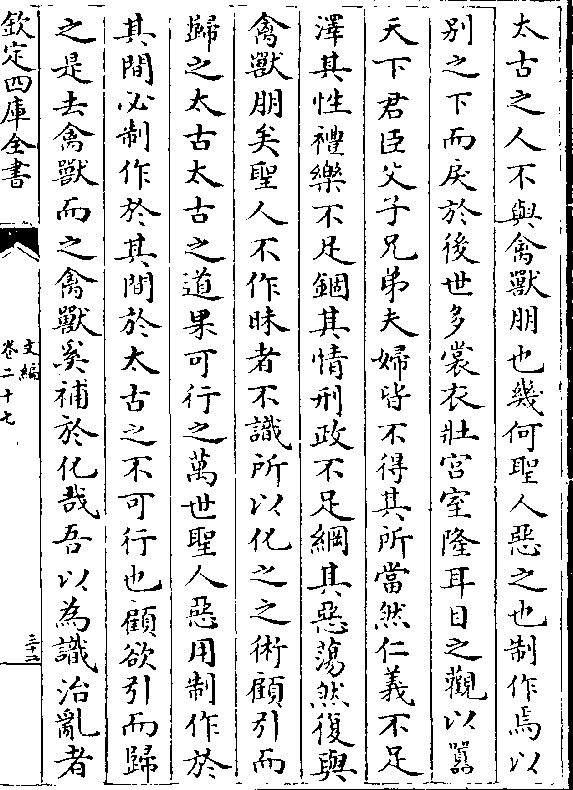 太古之人不與禽獸朋也幾何聖人惡之也制作焉以
别之下而戾於後世多裳衣壯宫室隆耳目之觀以囂
天下君臣父子兄弟夫婦皆不得其所當然仁義不足
澤其性禮樂不足錮其情刑政不足網其惡蕩然復與
禽獸朋矣聖人不作昧者不識所以化之之術顧引而
歸之太古太古之道果可行之萬世聖人惡用制作於
其間必制作於其間於太古之不可行也顧欲引而歸
之是去禽獸而之禽獸奚補於化哉吾以為識治亂者
欽定四庫全書
文編
卷二十七
三十二